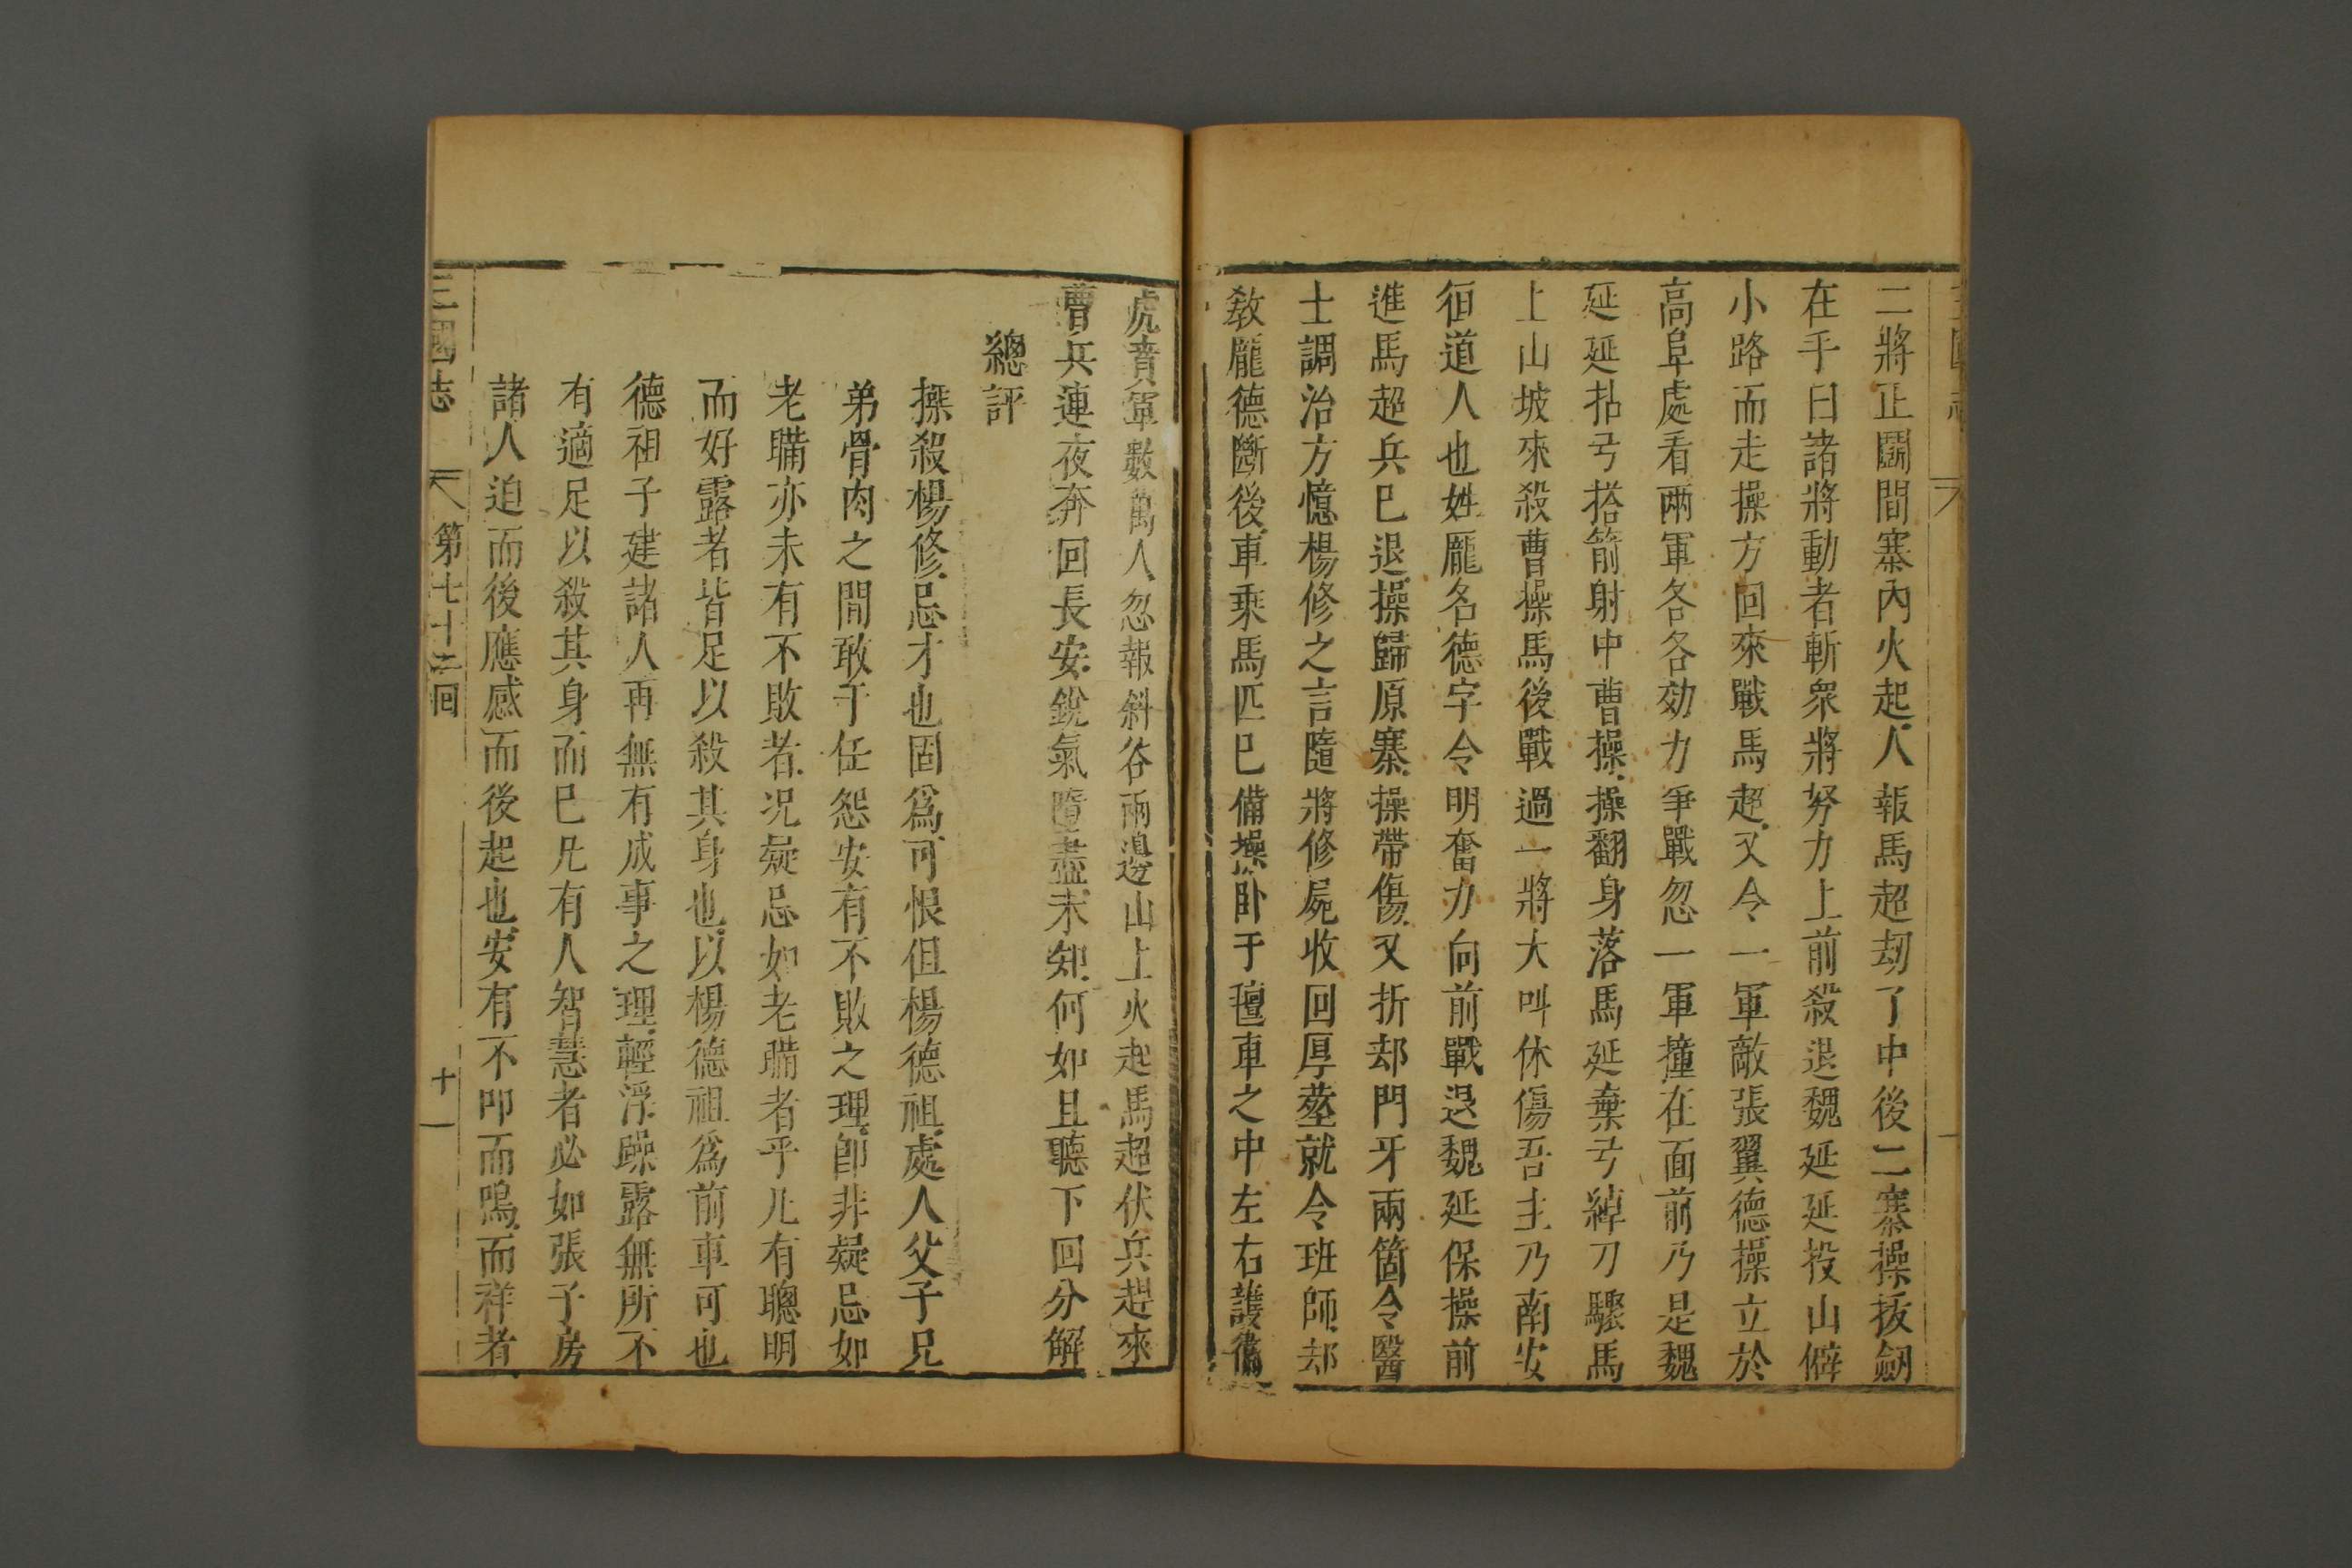 二將正鬬間寨內火起人報馬超刼了中後二寨操拔劒
在手曰諸將動者斬衆將努力上前殺退魏延延投山僻
小路而走操方回來戰馬超又令一軍敵張翼德操立於
高阜處看兩軍各各効力爭戰忽一軍撞在面前乃是魏
延延拈弓搭箭射中曹操操翻身落馬延棄弓綽刀驟馬
上山坡來殺曹操馬後戰過一將大叫休傷吾主乃南安
徂道人也姓龐名德字令明奮力向前戰退魏延保操前
進馬超兵已退操歸原寨操帶傷又折却門牙兩箇令醫
士調治方憶楊修之言隨將修屍收回厚塟就令班師却
敎龐德斷後車乘馬匹已備操卧于氊車之中左右護衞
虎賁軍數萬人忽報斜谷兩邊山上火起馬超伏兵趕來
曹兵連夜奔回長安銳氣隳盡未知何如且聽下回分解
總評
操殺楊修忌才也固爲可恨但楊德祖處人父子兄
弟骨肉之間敢于任怨安有不敗之理卽非疑忌如
老瞞亦未有不敗者况疑忌如老瞞者乎凡有聰明
而好露者皆足以殺其身也以楊德祖爲前車可也
德祖子建諸人再無有成事之理輕浮躁露無所不
有適足以殺其身而已凡有人智慧者必如張子房
諸人迫而後應感而後起也安有不叩而鳴而祥者
三國志 第七十二回 十一